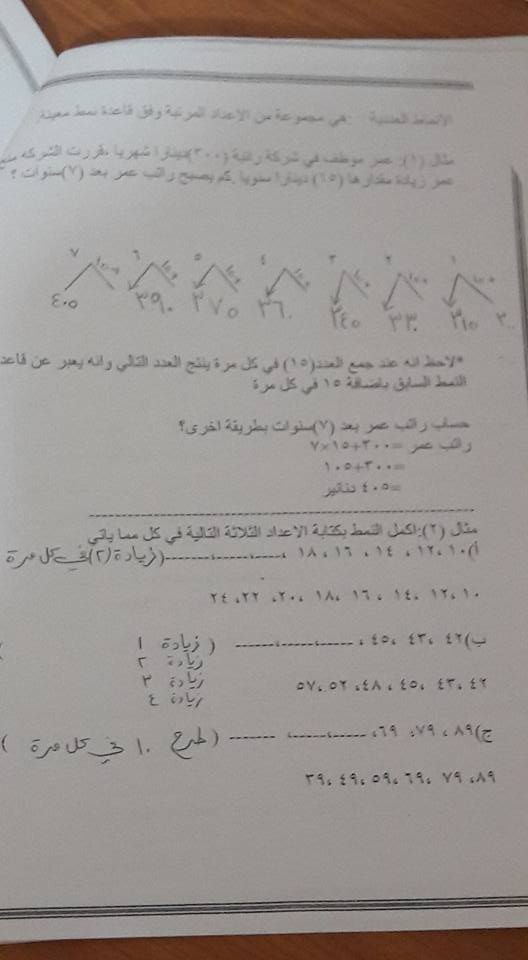 الأنماط العددية : هي مجموعة من الاعداد المرتبة وفق قاعدة نمط معينة
مثال (١): عمر موظف في شركة راتبة (٣٠٠)دينارا شهريا ،قررت الشركه
عمر زيادة مقدارها (١٥) دينارا سنويا .كم يصبح راتب عمر بعد (٧)سنوات ؟
١ ٢ ٣ ٤ ٥ ٦ ٧
٣١٥ ٣٣٠ ٣٤٥ ٣٦٠ ٣٧٥ ٣٩٠ ٤٠٥
*لاحظ انه عند جمع العدد(١٥) في كل مرة ينتج العدد التالي وانه يعبر عن قاعد
النمط السابق باضافة ١٥ في كل مرة
حساب راتب عمر بعد (٧)سنوات بطريقة اخرى؟
راتب عمر =٣٠٠+١٥×٧
=٣٠٠+١٠٥
=٤٠٥ دنانير
مثال (٢):اكمل النمط بكتابة الاعداد الثلاثة التالية في كل مما ياتي
أ)١٠، ١٢، ١٤ ، ١٦ ، ١٨ ، ------،------،------(زيادة (٢) في كل مرة
١٠، ١٢، ١٤، ١٦ ، ١٨ ،٢٠، ٢٢، ٢٤
ب)٤٢ ،٤٣ ،٤٥، ------،------،------ ( زيادة ١
زيادة ٢
زيادة ٣
زيادة ٤
٤٢ ،٤٣، ٤٥، ٤٨، ٥٢، ٥٧
ج)٨٩ ، ٧٩، ٦٩، ------،------، ------ ( طرح ١٠ في كل مرة )
٨٩، ٧٩ ،٦٩، ٥٩، ٤٩، ٣٩